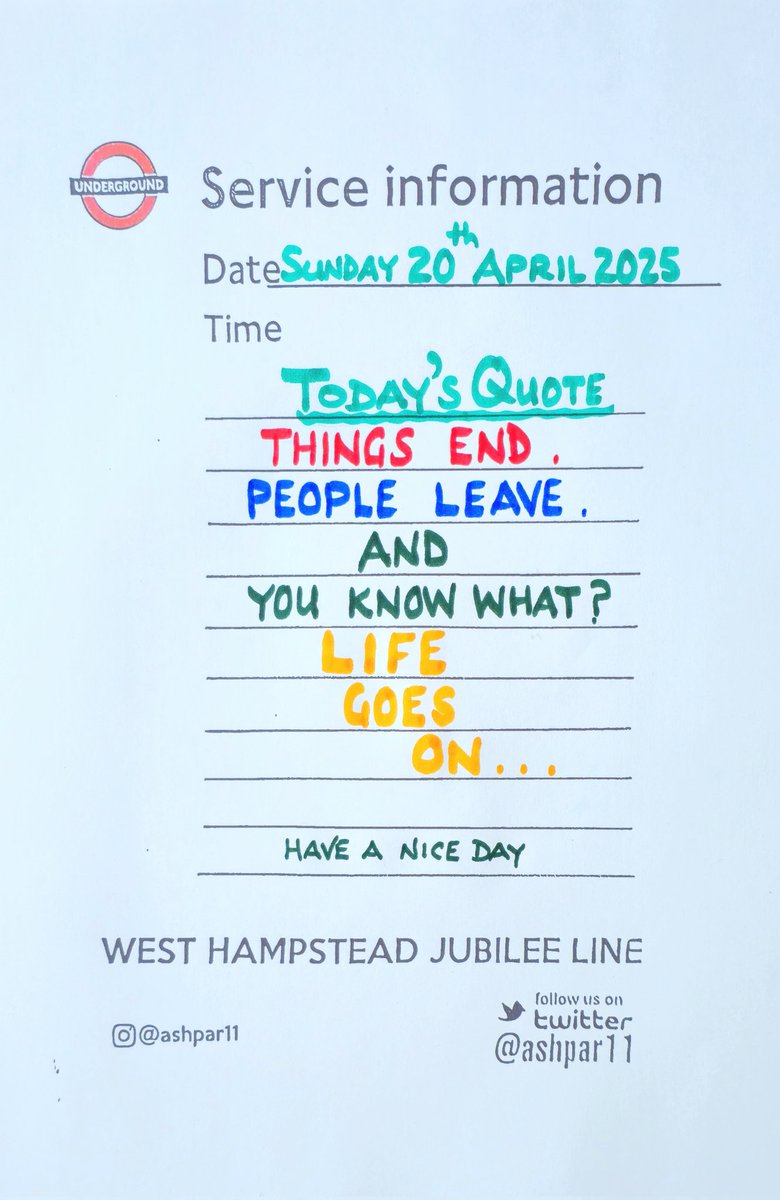 UNDERGROUND
Service information
Date SUNDAY 20th APRIL 2025
Time
TODAY'S QUOTE
THINGS END.
PEOPLE LEAVE.
AND
YOU KNOW WHAT?
LIFE
GOES
ON...
HAVE A NICE DAY
WEST HAMPSTEAD JUBILEE LINE
follow us on
twitter
@ashpar11
@ashpar11